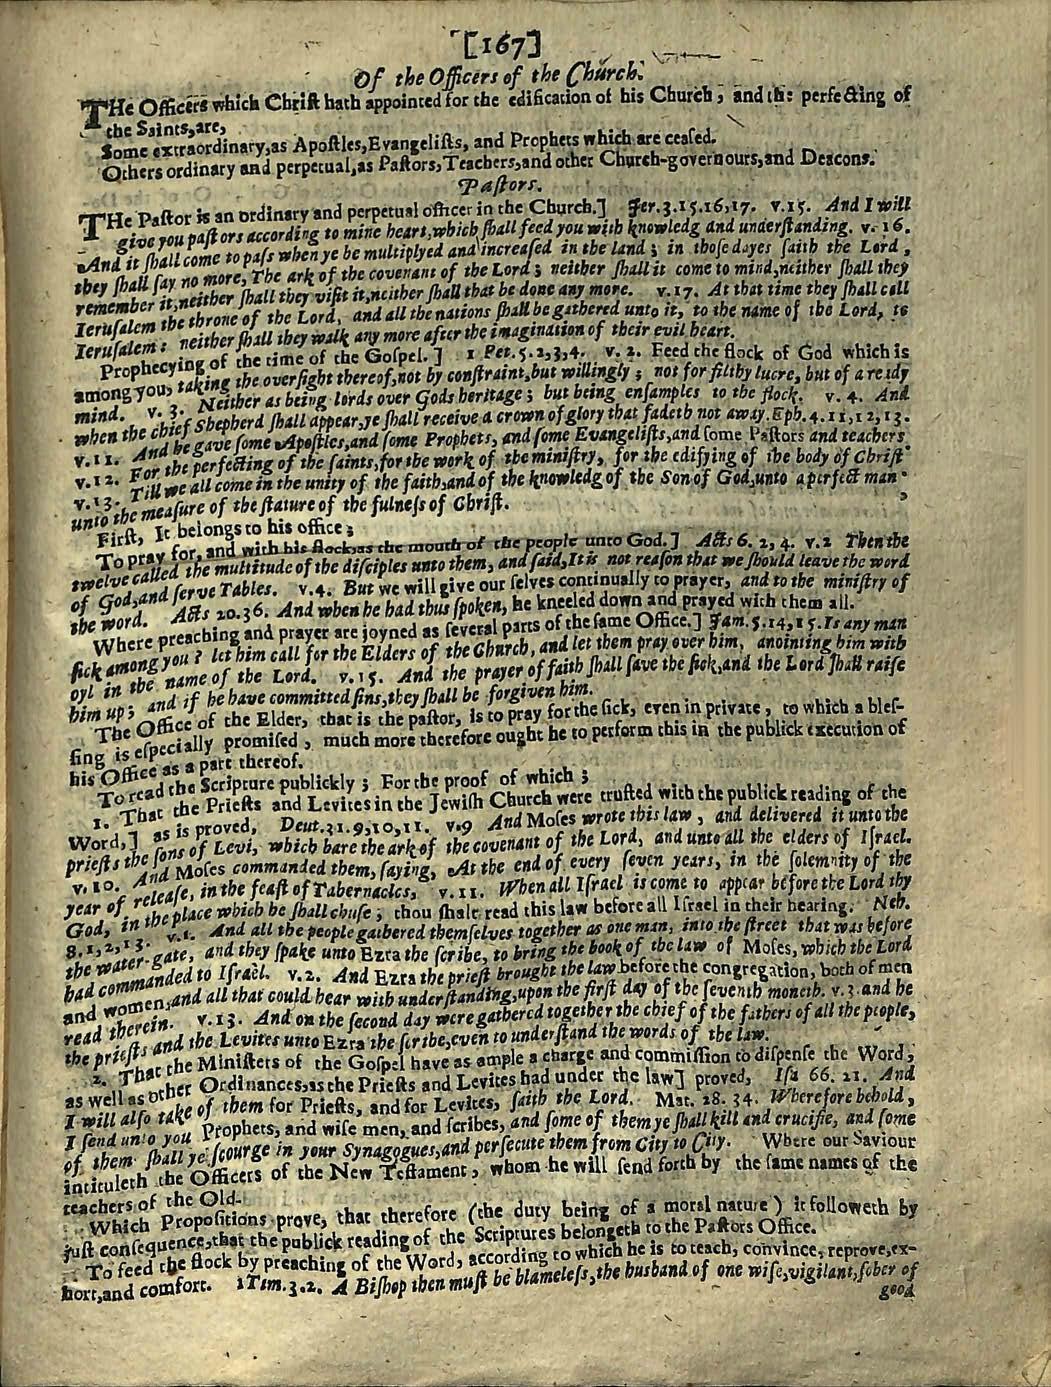 [167]
Of the Officers of the Church.
THe Officers which Chriſt hath appointed for the edification of his Church, and the perfecting of
the Saints, are,
Some extraordinary, as Apoſtles, Evangeliſts, and Prophets which are ceaſed.
Others ordinary and perpetual, as Paſtors, Teachers, and other Church-governours, and Deacons.
Paſtors.
THe Paſtor is an ordinary and perpetual officer in the Church.] Jer. 3. 15. 16, 17. v. 15. And I will
give you paſtors according to mine heart, which ſhall feed you with knowledg and underſtanding. v. 16.
And it ſhall come to paſs when ye be multiplyed and increaſed in the land; in thoſe dayes ſaith the Lord,
they ſhall ſay no more, The ark of the covenant of the Lord; neither ſhall it come to mind, neither ſhall they
remember it, neither ſhall they viſit it, neither ſhall that be done any more. v. 17. At that time they ſhall call
Ieruſalem the throne of the Lord, and all the nations ſhall be gathered unto it, to the name of the Lord, to
Ieruſalem: neither ſhall they walk any more after the imagination of their evil heart.
Prophecying of the time of the Goſpel.] 1 Pet. 5. 2, 3, 4. v. 2. Feed the flock of God which is
among you, taking the overſight thereof, not by conſtraint, but willingly; not for filthy lucre, but of a ready
mind. v. 3. Neither as being lords over Gods heritage; but being enſamples to the flock. v. 4. And
when the chief Shepherd ſhall appear, ye ſhall receive a crown of glory that fadeth not away. Eph. 4. 11, 12, 13.
v. 11. And he gave ſome Apoſtles, and ſome Prophets, and ſome Evangeliſts, and ſome Paſtors and teachers
v. 12. For the perfecting of the ſaints, for the work of the miniſtry, for the edifying of the body of Chriſt.
v. 13. Till we all come in the unity of the faith, and of the knowledg of the Son of God, unto a perfect man,
unto the meaſure of the ſtature of the fulneſs of Chriſt.
Firſt, It belongs to his office;
To pray for, and with his flock, as the mouth of the people unto God.] Acts 6. 2, 4. v. 2 Then the
twelve called the multitude of the diſciples unto them, and ſaid, It is not reaſon that we ſhould leave the word
of God, and ſerve Tables. v. 4. But we will give our ſelves continually to prayer, and to the miniſtry of
the word. Acts 20. 36. And when he had thus ſpoken, he kneeled down and prayed with them all.
Where preaching and prayer are joyned as ſeveral parts of the ſame Office.] Jam. 5. 14, 15. Is any man
ſick among you? let him call for the Elders of the Church, and let them pray over him, anointing him with
oyl in the name of the Lord. v. 15. And the prayer of faith ſhall ſave the ſick, and the Lord ſhall raiſe
him up; and if he have committed ſins, they ſhall be forgiven him.
The Office of the Elder, that is the paſtor, is to pray for the ſick, even in private, to which a bleſ-
ſing is eſpecially promiſed, much more therefore ought he to perform this in the publick execution of
his Office as a part thereof.
To read the Scripture publickly; For the proof of which;
1. That the Prieſts and Levites in the Jewiſh Church were truſted with the publick reading of the
Word,] as is proved, Deut. 31. 9, 10, 11. v. 9 And Moſes wrote this law, and delivered it unto the
prieſts the ſons of Levi, which bare the ark of the covenant of the Lord, and unto all the elders of Iſrael.
v. 10. And Moſes commanded them, ſaying, At the end of every ſeven years, in the ſolemnity of the
year of releaſe, in the feaſt of Tabernacles, v. 11. When all Iſrael is come to appear before the Lord thy
God, in the place which he ſhall chuſe, thou ſhalt read this law before all Iſrael in their hearing. Neh.
8. 1, 2, 13. v. 1. And all the people gathered themſelves together as one man, into the ſtreet that was before
the water-gate, and they ſpake unto Ezra the ſcribe, to bring the book of the law of Moſes, which the Lord
had commanded to Iſrael. v. 2. And Ezra the prieſt brought the law before the congregation, both of men
and women, and all that could hear with underſtanding, upon the firſt day of the ſeventh moneth. v. 3. and he
read therein. v. 13. And on the ſecond day were gathered together the chief of the fathers of all the people,
the prieſts and the Levites unto Ezra the ſcribe, even to underſtand the words of the law.
2. That the Miniſters of the Goſpel have as ample a charge and commiſſion to diſpenſe the Word,
as well as other Ordinances, as the Prieſts and Levites had under the law] proved, Iſa 66. 21. And
I will alſo take of them for Prieſts, and for Levites, ſaith the Lord. Mat. 28. 34. Wherefore behold,
I ſend unto you Prophets, and wiſe men, and ſcribes, and ſome of them ye ſhall kill and crucifie, and ſome
of them ſhall ye ſcourge in your Synagogues, and perſecute them from City to City. Where our Saviour
intituleth the Officers of the New Teſtament, whom he will ſend forth by the ſame names of the
teachers of the Old.
Which Propoſitions prove, that therefore (the duty being of a moral nature) it followeth by
juſt conſequence, that the publick reading of the Scriptures belongeth to the Paſtors Office.
To feed the flock by preaching of the Word, according to which he is to teach, convince, reprove, ex-
hort, and comfort. 1 Tim. 3. 2. A Biſhop then muſt be blameleſs, the husband of one wife, vigilant, ſober of
good